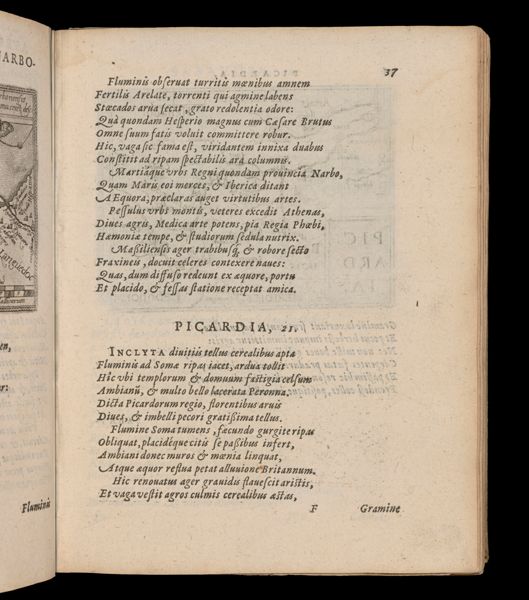 NARBO-
Languedoc
en,
er:
Fluminis
37
Fluminis obſeruat turritis mœnibus amnem
Fertilis Arelate, torrenti qui agmine labens
Stœcados arua ſecat, grato redolentia odore:
Quà quondam Heſperio magnus cum Cæſare Brutus
Omne ſuum fatis voluit committere robur.
Hic, vaga ſic fama eſt, viridantem innixa duabus
Conſtitit ad ripam ſpectabilis ara columnis.
Martiáque vrbs Regni quondam prouincia Narbo,
Quam Maris eoi merces, & Iberica ditant
AEquora, præclaras auget virtutibus artes.
Peſſulus vrbs montis, veteres excedit Athenas,
Diues agris, Medica arte potens, pia Regia Phœbi,
Hæmoniæ tempe, & ſtudiorum ſedula nutrix.
Maßilienſis ager trabibusq́, & robore ſecto
Fraxineis, docuit celeres contexere naues:
Quas, dum diffuſo redeunt ex æquore, portu
Et placido, & feſſas ſtatione receptat amica.
PICARDIA, 21.
INCLYTA diuitiis tellus cerealibus apta
Fluminis ad Somæ ripas iacet, ardua tollit
Hîc vbi templorum & domuum faſtigia celſum
Ambianū, & multo bello lacerata Peronna.
Dicta Picardorum regio, florentibus aruis
Diues, & imbelli pecori gratißima tellus.
Flumine Soma tumens, fæcundo gurgite ripas
Obliquat, placidéque citis ſe paßibus infert,
Ambiani donec muros & mœnia linquat,
Atque æquor reflua petat alluuione Britannum.
Hic renouatus ager grauidis flaueſcit ariſtis,
Et vaga veſtit agros culmis cerealibus æſtas,
F Gramine